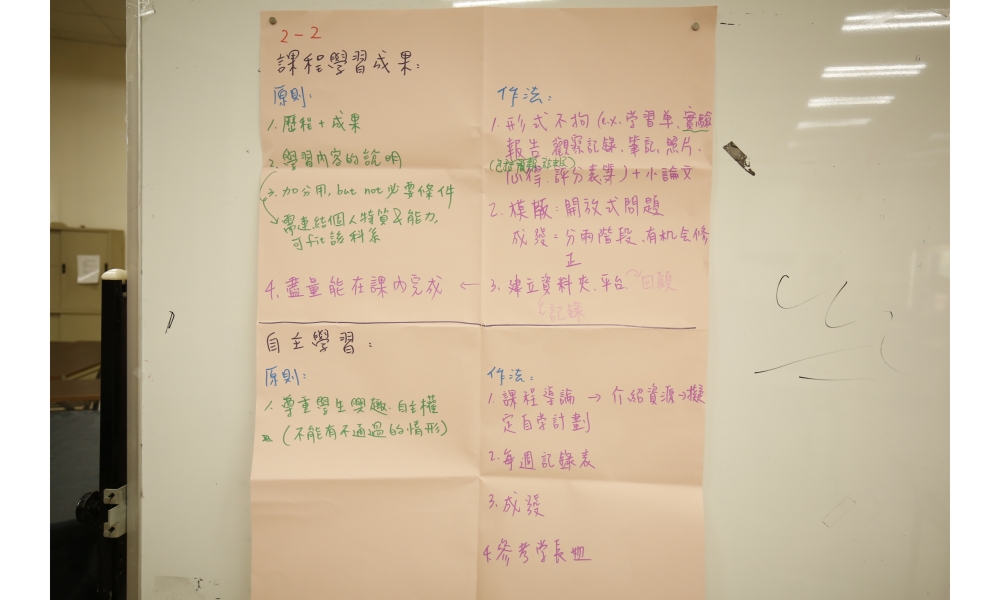 2-2
課程學習成果:
原則:
1. 歷程+成果
2. 學習內容的說明
3. 加分用, but not 必要條件
需連結個人特質&能力,
可fit該科系
4. 盡量能在課內完成 ←
作法:
1. 形式不拘 (ex. 學習單、實驗
報告、觀察記錄、筆記、照片、
心得、評分表等)+小論文
2. 模版:開放式問題
成發=分兩階段、有机会修
正
3. 建立資料夾、平台 回顧
記錄
自主學習:
原則:
1. 尊重學生興趣、自主權
(不能有不通過的情形)
作法:
1. 課程導論 → 介紹資源→擬
定自学計劃
2. 每週記錄表
3. 成發
4. 參考学長姐